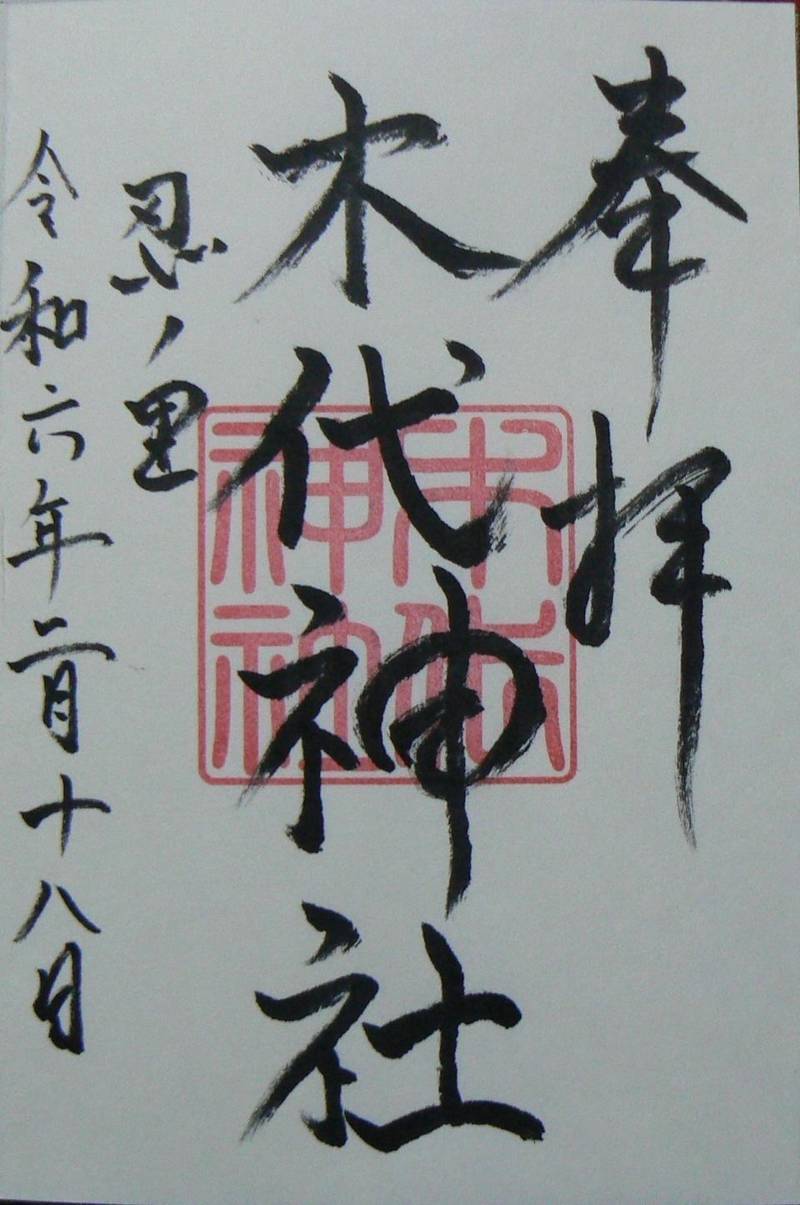 奉拝
木代神社
木代神社
忍ノ里
令和六年二月十八日